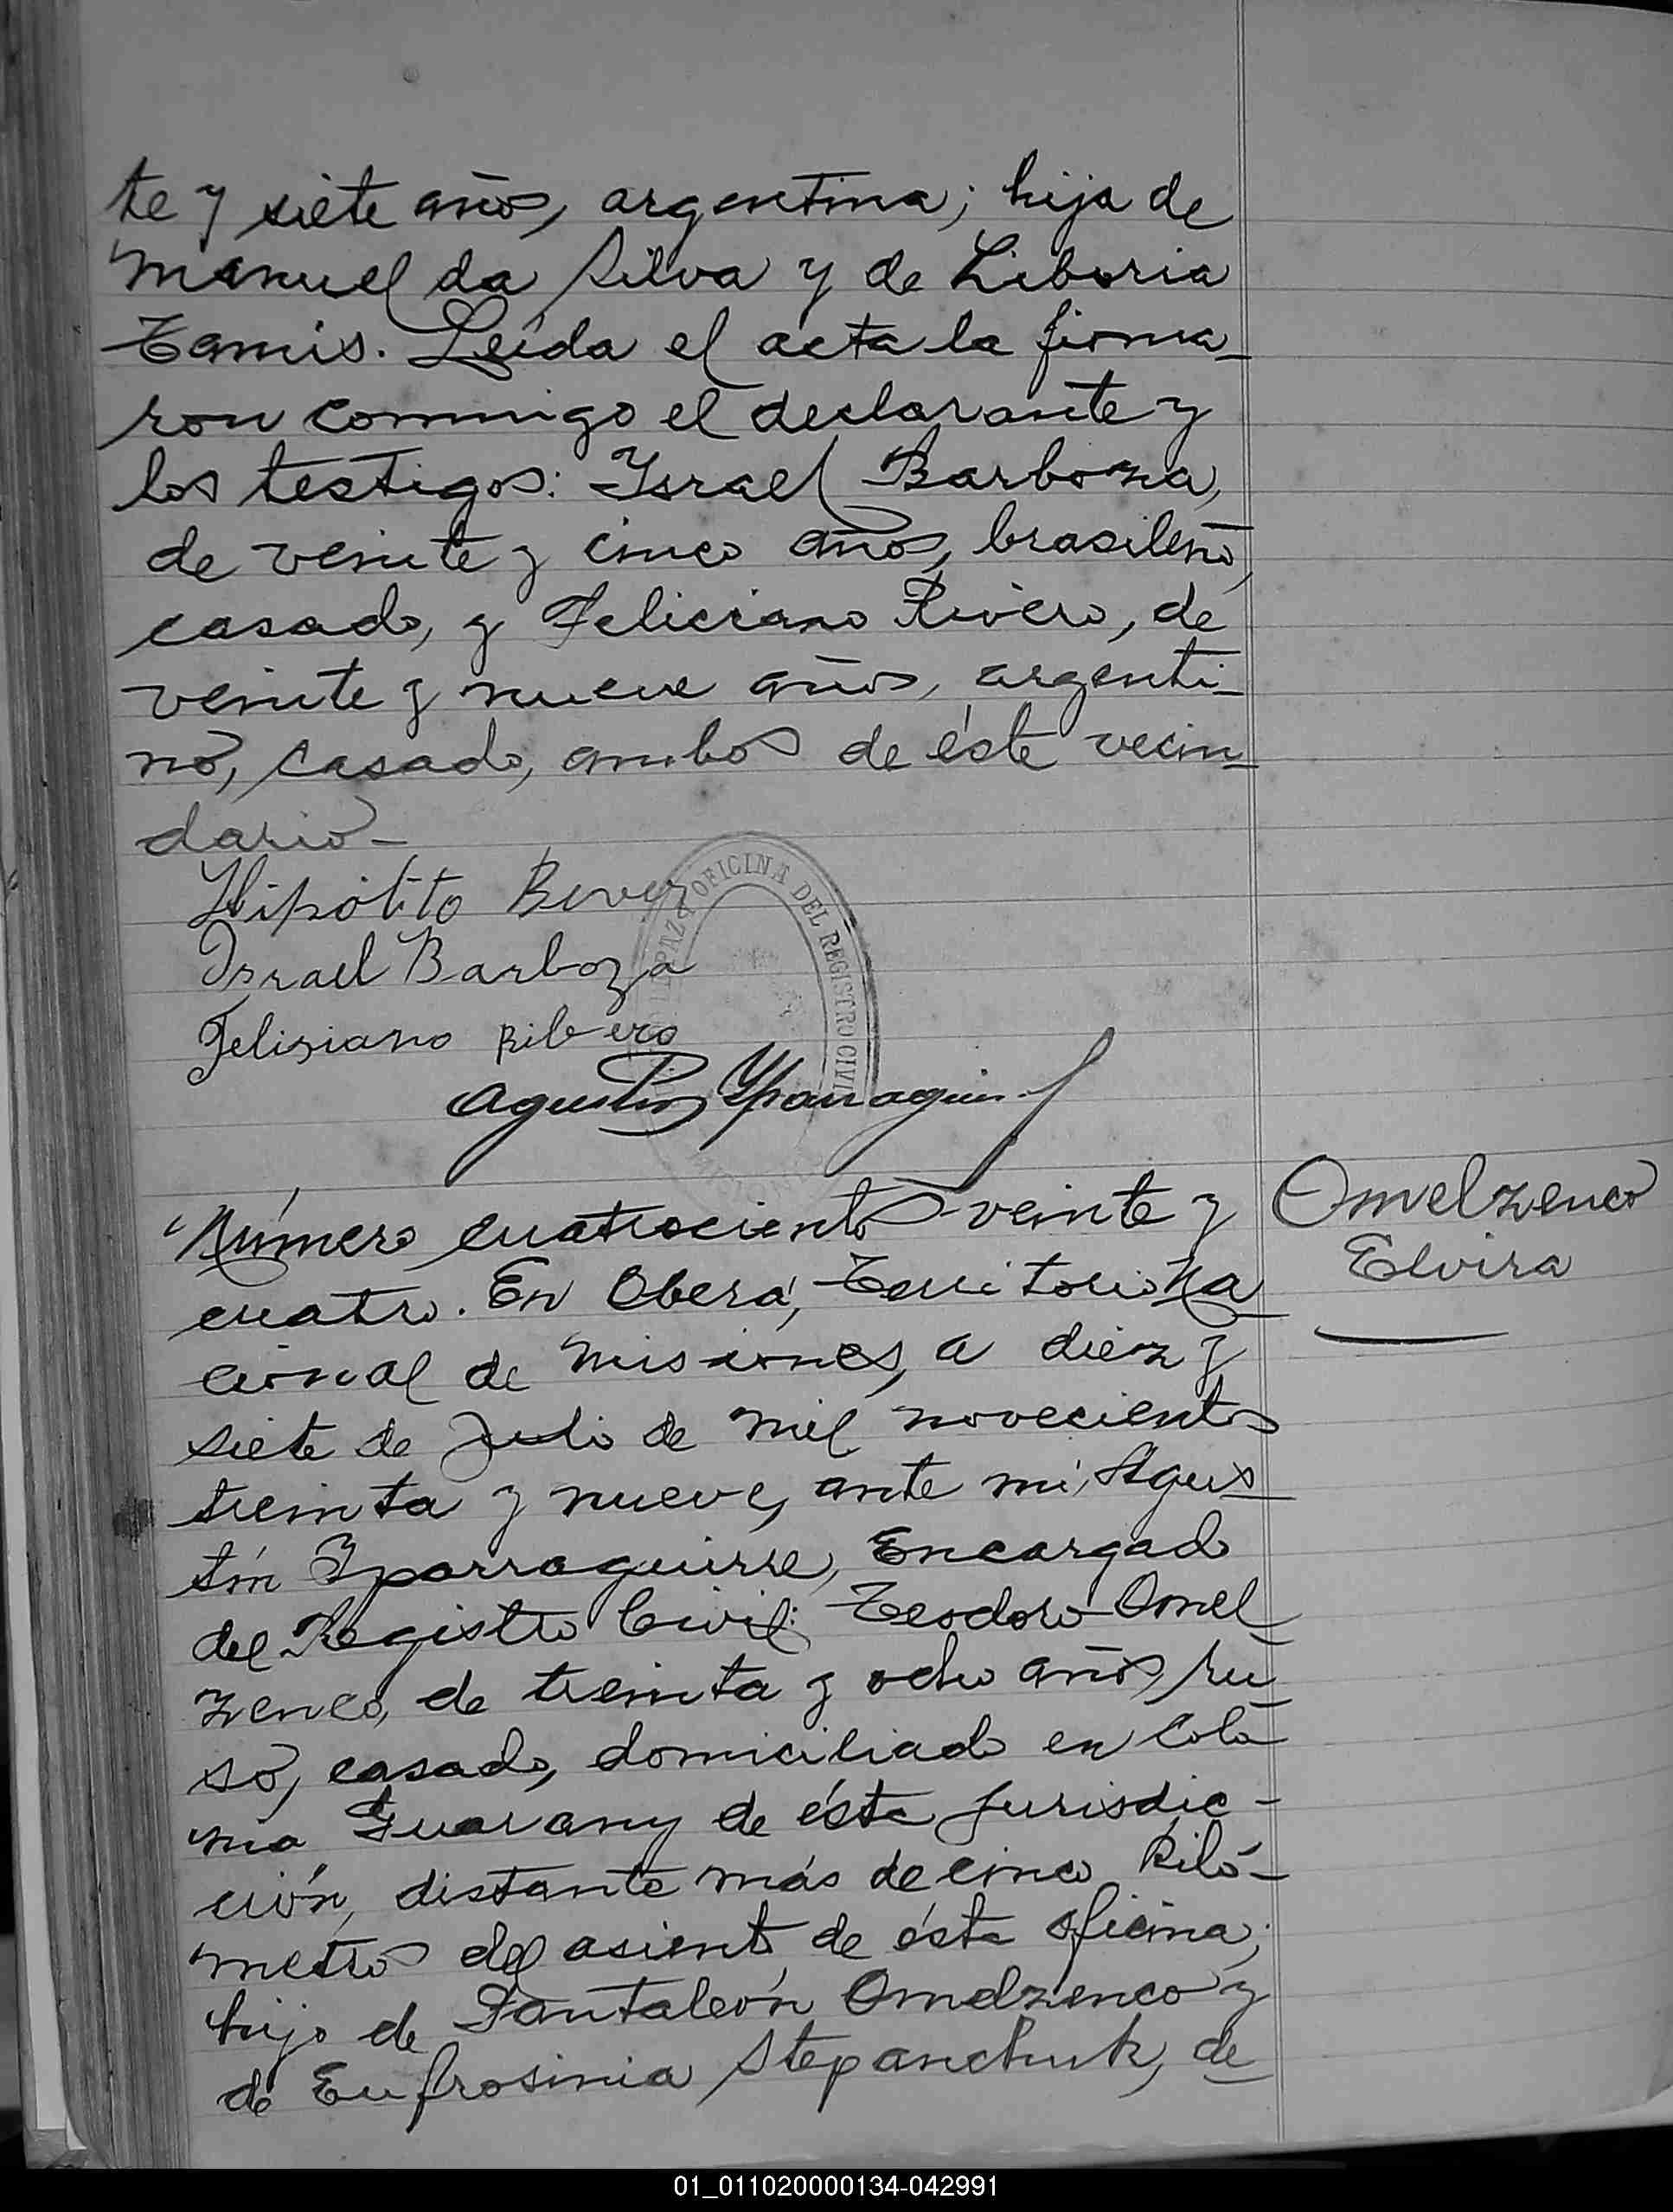 te y siete años, argentina; hija de
Manuel da Silva y de Liboria
Tamis. Leída el acta la firma-
ron conmigo el declarante y
los testigos: Israel Barboza,
de veinte y cinco años, brasileño,
casado, y Feliciano Rivero, de
veinte y nueve años, argenti-
no, casado, ambos de éste vecin-
dario-
Hipólito
Israel Barboza
Felisiano Ribero
OFICINA DEL REGISTRO CIVIL
Agustin Yparraguirre
Número cuatrocientos veinte y
cuatro. En Oberá, Territorio Na
cional de Misiones, a diez y
siete de Julio de mil novecientos
treinta y nueve, ante mi, Agus-
tín Yparraguirre, Encargado
del Registro Civil: Teodoro Omel
zenco, de treinta y ocho años, ru
so, casado, domiciliado en Colo
nia Guarany de ésta jurisdic-
ción, distante más de cinco kiló-
metros del asiento de ésta oficina;
hijo de Pantaleón Omelzenco y
de Eufrosinia Stepanchuk, de
Omelzenco
Elvira
01_011020000134-042991